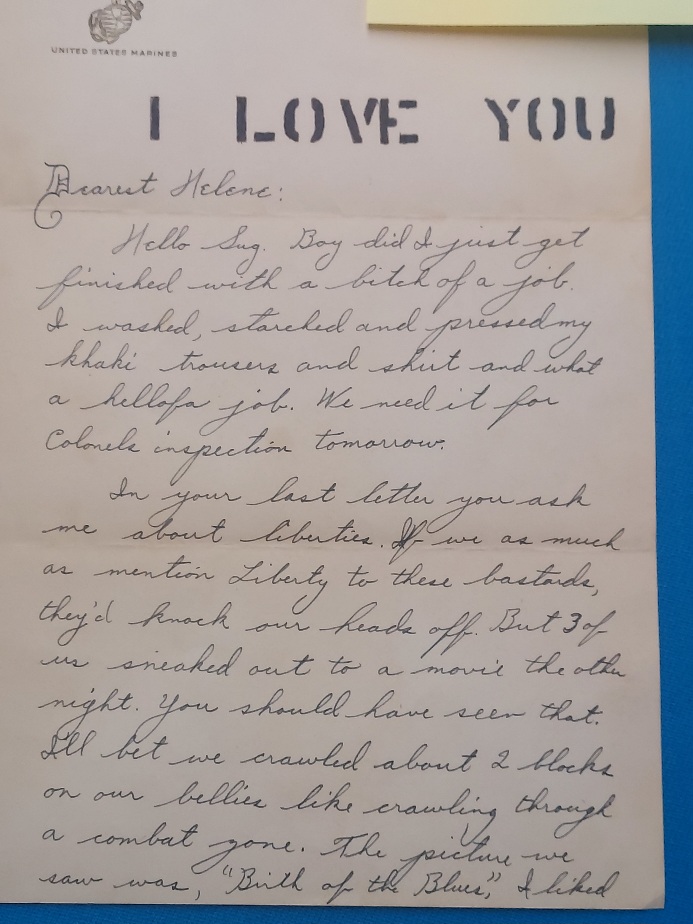 UNITED STATES MARINES
I LOVE YOU
Dearest Helene:
Hello Sug. Boy did I just get
finished with a bitch of a job.
I washed, starched and pressed my
khaki trousers and shirt and what
a hellofa job. We need it for
Colonels inspection tomorrow.
In your last letter you ask
me about liberties. If we as much
as mention Liberty to these bastards,
they'd knock our heads off. But 3 of
us sneaked out to a movie the other
night. You should have seen that.
I'll bet we crawled about 2 blocks
on our bellies like crawling through
a combat zone. The picture we
saw was, "Birth of the Blues", I liked